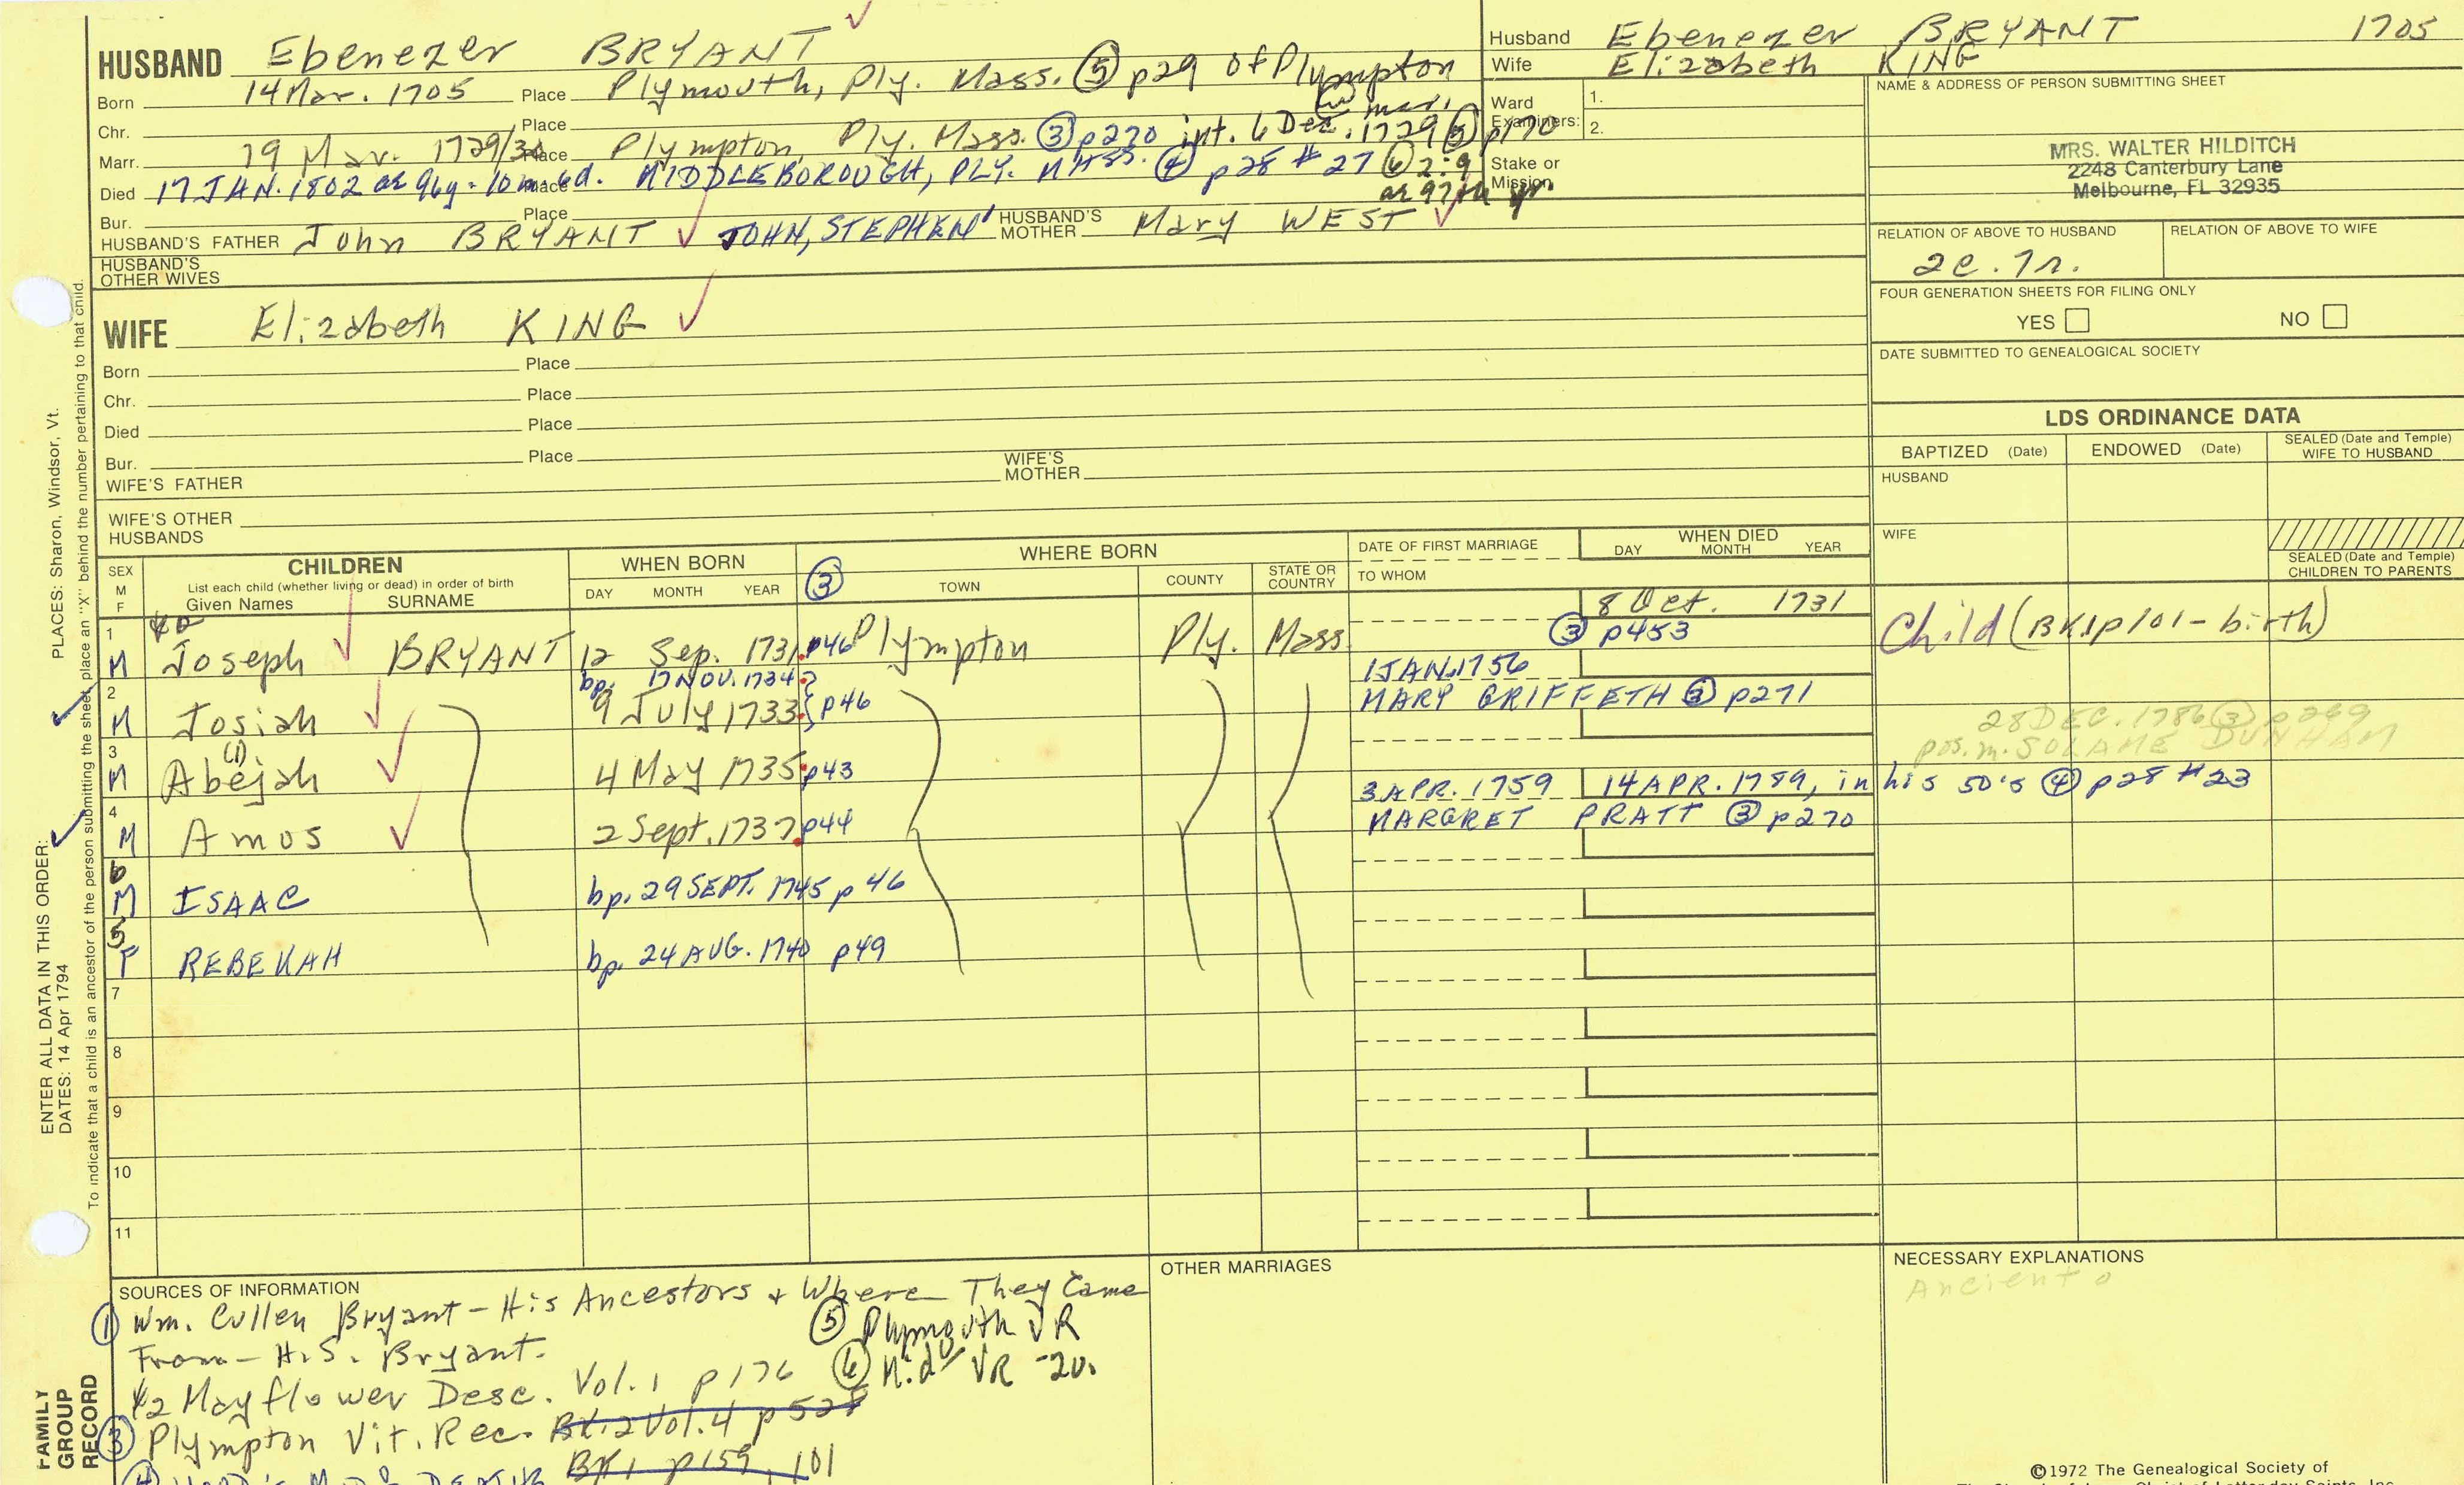 HUSBAND Ebenezer BRYANT
Born 14 Mar. 1705 Place Plymouth, Ply. Mass. ⑤ p29 of Plympton
Chr. Place
Marr. 19 Mar. 1729/30 Place Plympton, Ply. Mass. ③ p270 int. 6 Dec. 1729 ⑤ p170
Died 17 JAN. 1802 ae 96y-10m-6d. Place MIDDLEBOROUGH, PLY. MASS. ④ p28 #27 ⑥ 2:9
ae 97th yr.
Bur. Place
HUSBAND'S FATHER John BRYANT JOHN, STEPHEN HUSBAND'S MOTHER Mary WEST
HUSBAND'S OTHER WIVES
WIFE Elizabeth KING
Born Place
Chr. Place
Died Place
Bur. Place
WIFE'S FATHER WIFE'S MOTHER
WIFE'S OTHER HUSBANDS
Husband Ebenezer BRYANT 1705
Wife Elizabeth KING
Ward Examiners: 1. 2.
Stake or Mission
NAME & ADDRESS OF PERSON SUBMITTING SHEET
MRS. WALTER HILDITCH
2248 Canterbury Lane
Melbourne, FL 32935
RELATION OF ABOVE TO HUSBAND RELATION OF ABOVE TO WIFE
2c.7r.
FOUR GENERATION SHEETS FOR FILING ONLY
YES NO
DATE SUBMITTED TO GENEALOGICAL SOCIETY
LDS ORDINANCE DATA
BAPTIZED (Date) ENDOWED (Date) SEALED (Date and Temple) WIFE TO HUSBAND
HUSBAND
WIFE
SEALED (Date and Temple) CHILDREN TO PARENTS
SEX M F
CHILDREN
List each child (whether living or dead) in order of birth
Given Names SURNAME
WHEN BORN
DAY MONTH YEAR
③ WHERE BORN
TOWN COUNTY STATE OR COUNTRY
DATE OF FIRST MARRIAGE
TO WHOM
WHEN DIED
DAY MONTH YEAR
1 M Joseph BRYANT 12 Sep. 1731 p46 Plympton Ply. Mass. 8 Oct. 1731 ③ p453 Child (BK1p101-birth)
2 M Josiah bp. 17 NOV. 1734? 9 July 1733 p46 1 JAN. 1756 MARY GRIFFETH ③ p271
3 M Abejah (1) 4 May 1735 p43 28 DEC. 1786 ③ p269 pos. m. SOLAME DUNHAM
4 M Amos 2 Sept. 1737 p44 3 APR. 1759 14 APR. 1789, in his 50's ④ p28 #23
MARGRET PRATT ③ p270
6 M ISAAC bp. 29 SEPT. 1745 p46
5 F REBEKAH bp. 24 AUG. 1740 p49
7
8
9
10
11
SOURCES OF INFORMATION
① Wm. Cullen Bryant - His Ancestors & Where They Came
From - H.S. Bryant.
#2 Mayflower Desc. Vol. 1 p176
③ Plympton Vit. Rec. BK.2 Vol.4 p527
BK1 p159, 101
⑤ Plymouth VR
⑥ Mid VR -2v.
OTHER MARRIAGES
NECESSARY EXPLANATIONS
©1972 The Genealogical Society of
ENTER ALL DATA IN THIS ORDER:
DATES: 14 Apr 1794 PLACES: Sharon, Windsor, Vt.
To indicate that a child is an ancestor of the person submitting the sheet, place an "X" behind the number pertaining to that child.
FAMILY GROUP RECORD